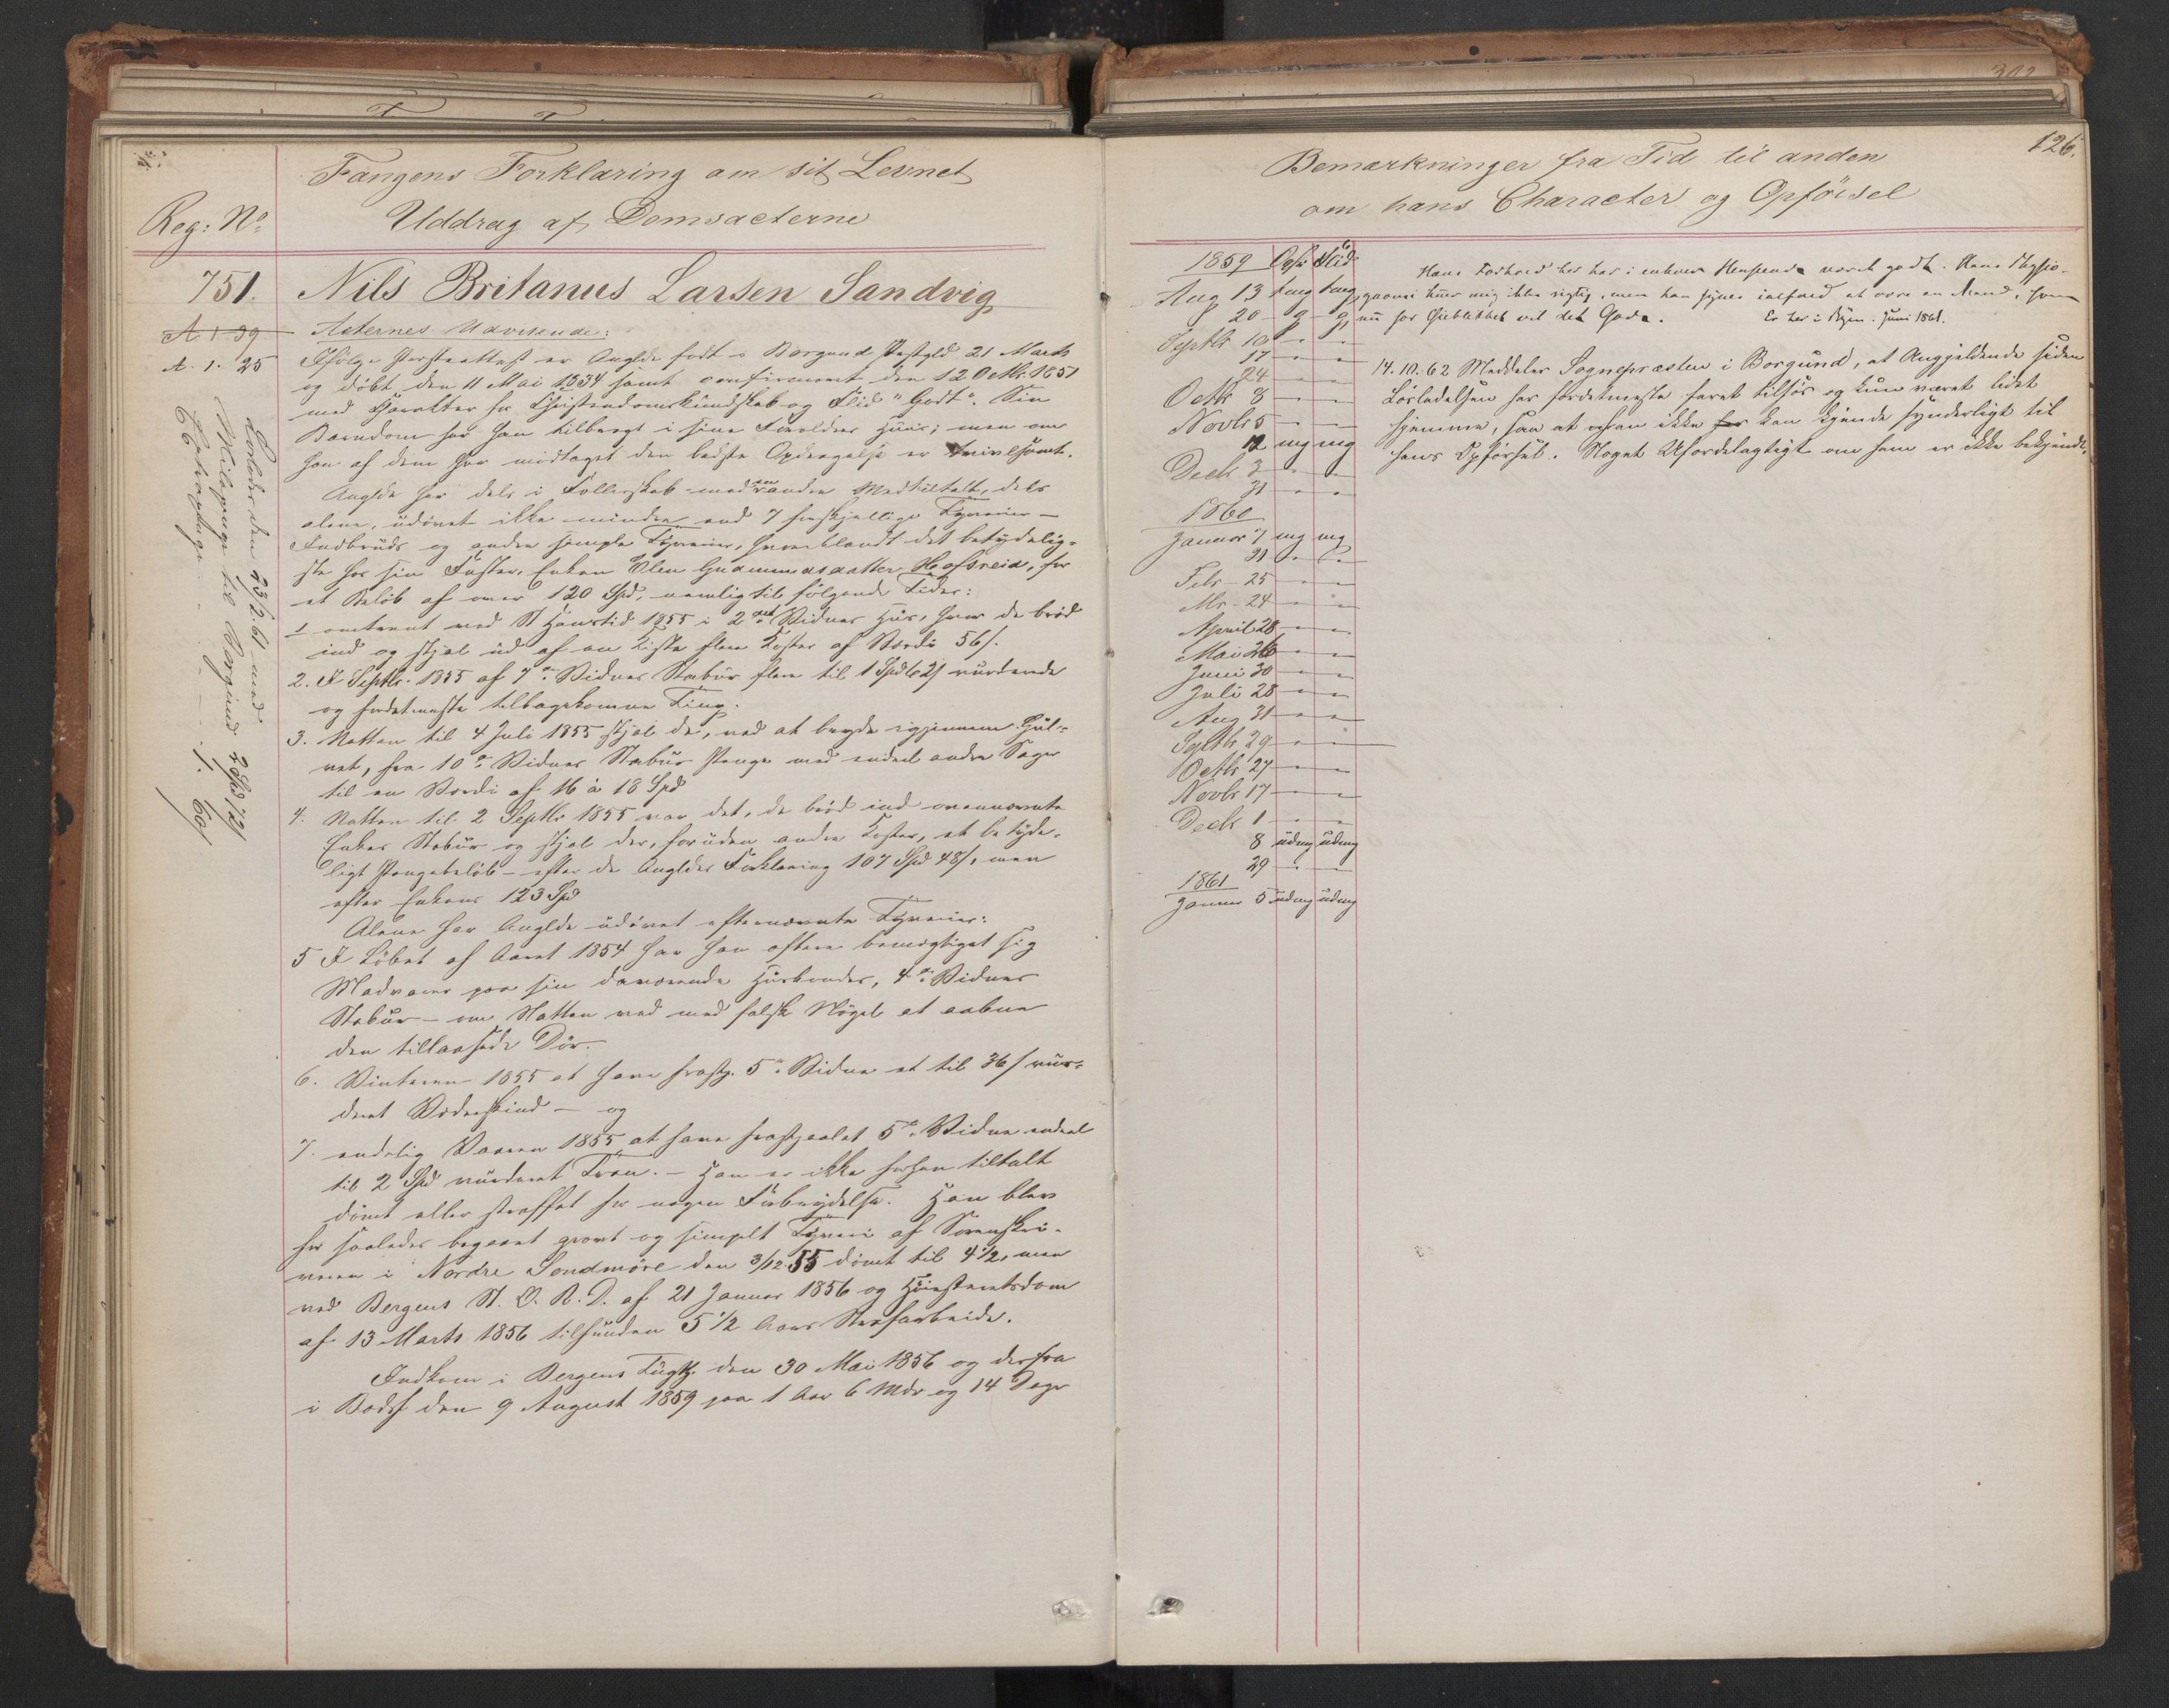 Fangens Forklaring om sit Levnet
Uddrag af Domsacterne
Reg: No
751. Nils Britanus Larsen Sandvig
A 1-39
A. 1. 25
Acternes Udvisende:
Ifølge Præsteattest er Anglde født i Borgund Pstgld 21 Marts
og døbt den 11 Mai 1834 samt confirmeret den 12 Octbr. 1851
med Karakter for Christendomskundskab og Flid "Godt". Sin
Barndom har han tilbragt i sine Forældres Huus; men om
han af dem har modtaget den bedste Opdragelse er tvivlsomt.
Anglde har dels i Fællesskab med en anden Medtiltalt, dels
alene, udøvet ikke mindre end 7 forskjellige Tyverier –
Indbruds og andre simple Tyverier, hvoriblandt det betydelig-
ste hos sin Faster, Enken Elen Gudmundsdatter Hofsreid, for
et Beløb af over 120 Spd, nemlig til følgende Tider:
1 omtrent ved St Hanstid 1855 i 2det Vidnes Huus, hvor de brød
ind og stjal ud af en Kiste flere Koster af Værdi 56 s.
2. I Septbr. 1855 af 7de Vidnes Stabur flere til 1 Spd 62 s vurderede
og fordetmeste tilbagekomne Ting.
3. Natten til 4 Juli 1855 stjal de, ved at bryde igjennem Gul-
vet, fra 10de Vidnes Stabur Penge med endeel andre Sager
til en Værdi af 16 à 18 Spd
4. Natten til 2 Septbr 1855 var det, de brød ind ovennævnte
Enkes Stabur og stjal der, foruden andre Koster, et betyde-
ligt Pengebeløb – efter de Angldes Forklaring 107 Spd 48 s, men
efter Enkens 123 Spd
Alene har Anglde udøvet efternævnte Tyverier:
5 I Løbet af Aaret 1854 har han oftere bemægtiget sig
Madvarer paa sin daværende Husbondes, 4de Vidnes
Stabur – om Natten ved med falsk Nøgel at aabne
den tillaasede Dør.
6. Vinteren 1855 at have frastj. 5te Vidne et til 36 s vur-
deret Væderskind – og
7. endelig Vaaren 1855 at have frastjaalet 5te Vidne endeel
til 2 Spd vurderet Tran. – Han er ikke forhen tiltalt
dømt eller straffet for nogen Forbrydelse. Han blev
for saaledes begaaet grovt og simpelt Tyveri af Sorenskri-
veren i Nordre Søndmøre den 3/12 55 dømt til 4½, men
ved Bergens St. O. R. D. af 21 Januar 1856 og Høiesteretsdom
af 13 Marts 1856 tilfunden 5½ Aars Strafarbeide.
Indkom i Bergens Tugth. den 30 Mai 1856 og derfra
i Bodsf den 9 August 1859 paa 1 Aar 6 Mdr og 14 Dage
Løsladt den 23/2. 61 med
Reisepenge til Borgund 2 Spd 72 s
Bemærkninger fra Tid til anden
om hans Character og Opførsel
126.
1859 Opfr Flid
Aug 13 tmg tmg
20 – g – g
Septbr 10 " "
17 " "
24 " "
Octbr 8 " "
Novbr 5 " "
12 mg mg
Decbr 3 " "
31 " "
1860
Januar 7 mg mg
21 " "
Febr 25 " "
Mr. 24 " "
April 28 " "
Mai 26 " "
Juni 30 " "
Juli 28 " "
Aug 31 " "
Septbr 29 " "
Octbr 27 " "
Novbr 17 " "
Decbr 1 " "
8 udmg udmg
29 " "
1861
Januar 5 udmg udmg
Hans Forhold her har i enhver Henseende været godt. Hans Physio-
gnomi huer mig ikke rigtig, men han synes ialfald at være en Mand, som
nu for Øieblikket vil det Gode. Er her i Byen. Juni 1861.
14.10.62 Meddeler Sognepræsten i Borgund, at Angjældende siden
Løsladelsen har fordetmeste faret tilsøs og kun været lidet
hjemme, saa at han ikke kan kjende synderligt til
hans Opførsel. Noget Ufordelagtigt om ham er ikke bekjendt.